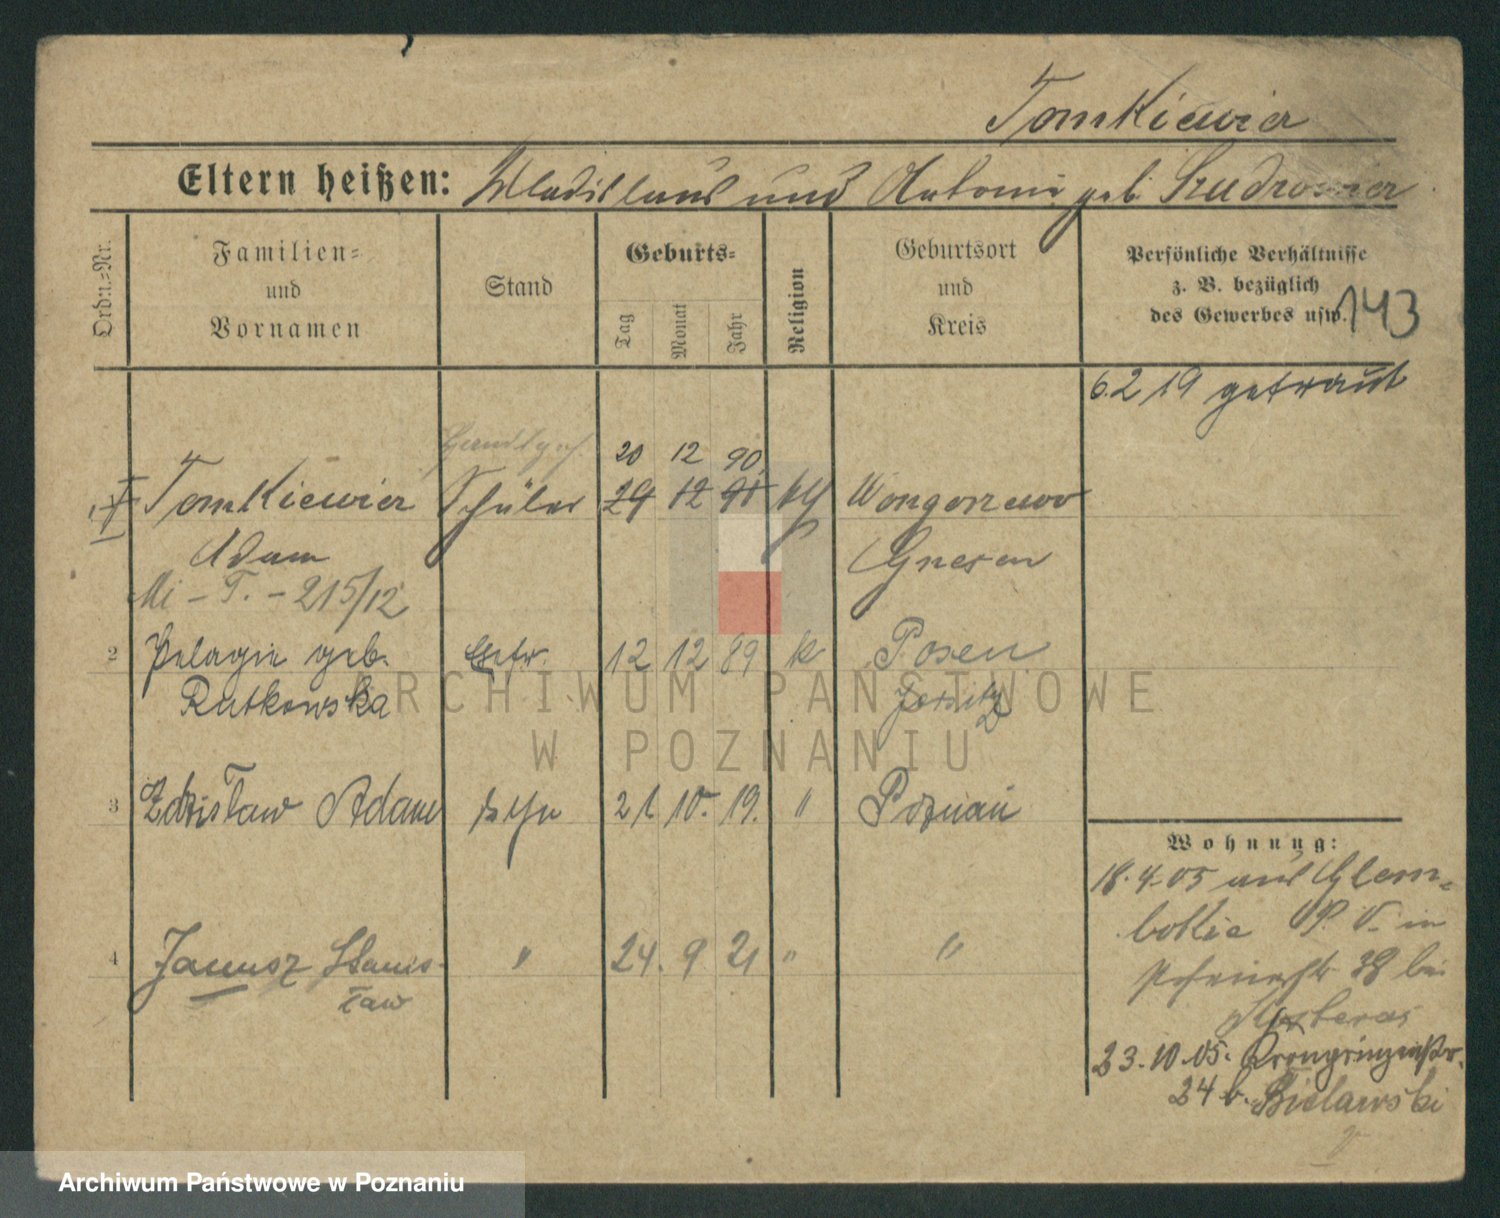 Tomkiewicz
Eltern heißen: Wladislaus und Antonie geb. Szudrowicz
Ordn.-Nr.
Familien-
und
Vornamen
Stand
Geburts-
Tag
Monat
Jahr
Religion
Geburtsort
und
Kreis
Persönliche Verhältnisse
z. B. bezüglich
des Gewerbes usw.
143
6.2 19 getraut
20 12 90
Tomkiewicz Schüler 29 12 91 kth Wongorzewo
Adam Gnesen
Mi - T. - 215/12
2 Pelagie geb. Ehefr. 12 12 89 k Posen
Rutkowska Jersitz
3 Zdzisław Adam Sohn 21 10. 19. " Poznań
4 Janusz Stanis- " 24. 9 21 " "
ław
Wohnung:
18.4.05 aus Glem-
bokie P. V. in
38 bei
23.10.05. Kronprinzenstr.
24 b. Bielawski
ARCHIWUM PAŃSTWOWE
W POZNANIU
Archiwum Państwowe w Poznaniu